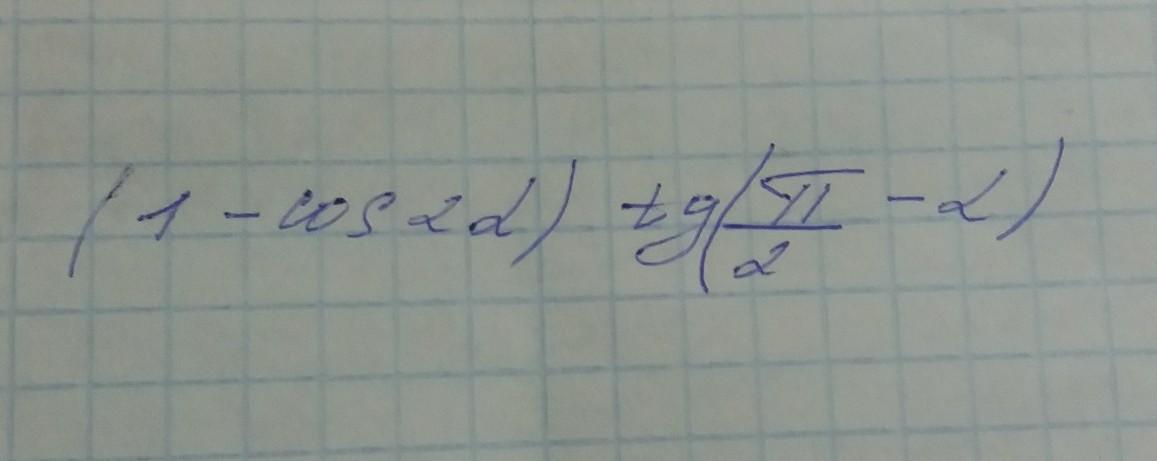 (1 - cos 2α) tg(π/2 - α)